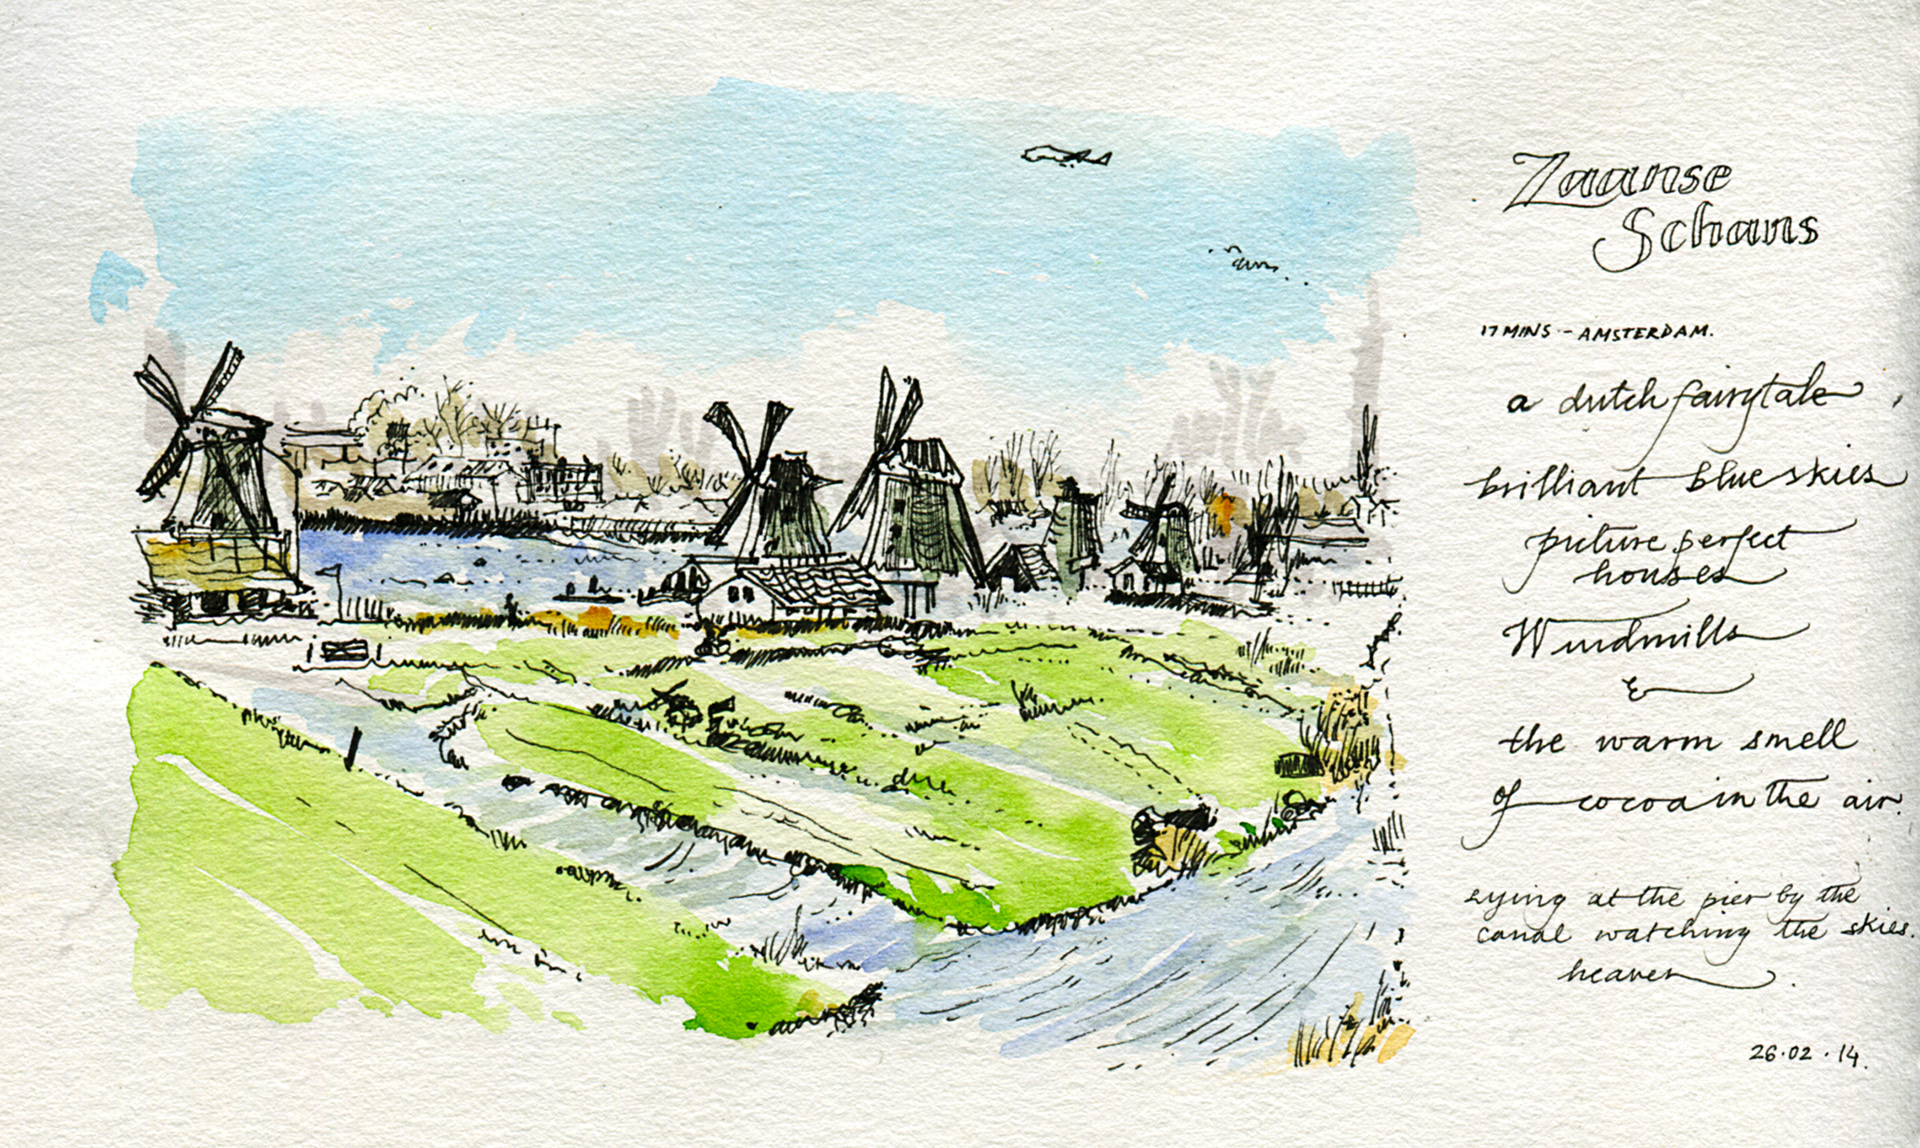 Zaanse
Schans
17 MINS - AMSTERDAM.
a dutch fairytale
brilliant blue skies
picture perfect
houses
Windmills
&
the warm smell
of cocoa in the air.
Lying at the pier by the
canal watching the skies.
heaven.
26.02.14.